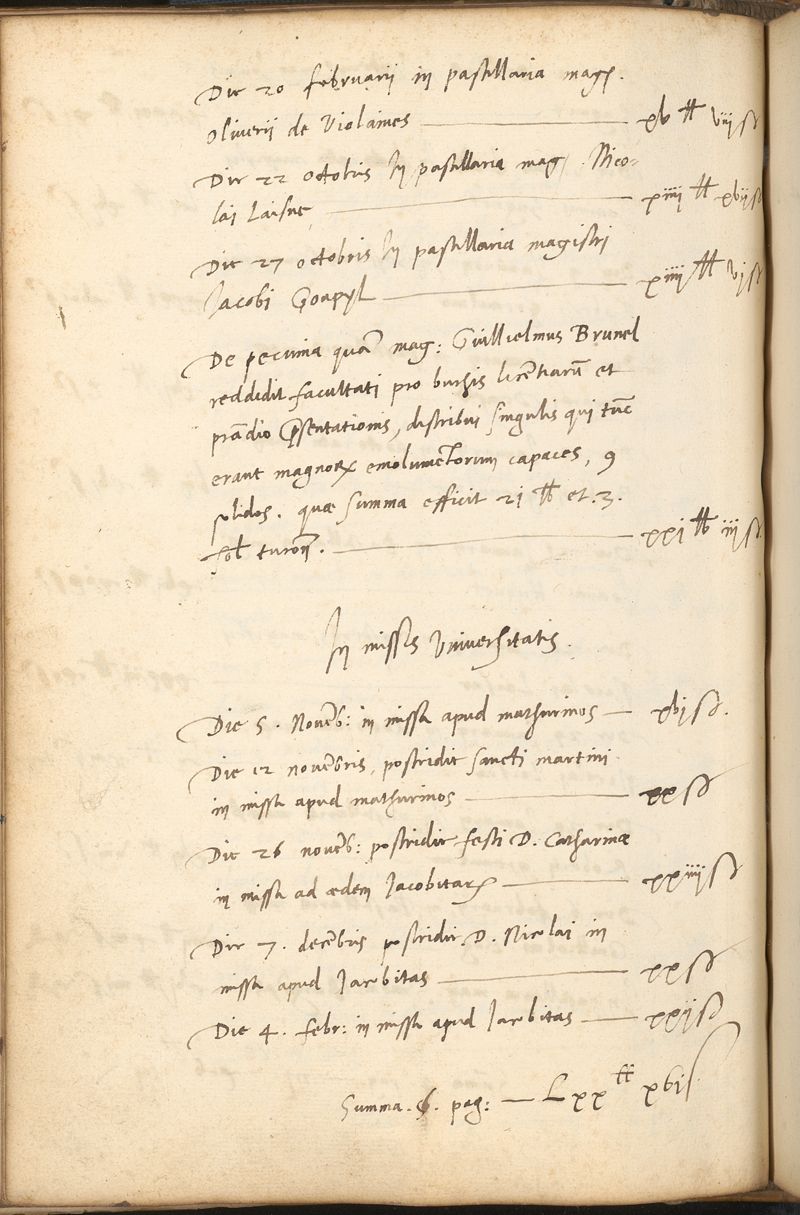 Die 20 februarij in pastillaria mag.
Oliverii de Violaines — xv ℔ viij s
Die 22 octobris In pastillaria mag. Nico-
lai Laisne — xiiij ℔ xvij s
Die 27 octobris In pastillaria magistri
Jacobi Goapyl — xiiij ℔ vj s
De pecunia quā mag: Guillielmus Brunel
reddidit facultati pro bursis licētiarū et
prādio p̃sentationis, distribui singulis qui tūc
erant magnorꝝ emolumētorum capaces, 9
solidos. quæ summa efficit 21 ℔ et .3.
sol turoñ. — xxj ℔ iij s.
In missis Universitatis.
Die 5. Novēb: in missa apud mathurinos — xvj s.
Die 12 novēbris, postridie sancti martini
in missa apud mathurinos — xx s
Die 26 novēb: postridie festi D. Catharinæ
in missa ad ædem Jacobitarꝝ — xxiiij s
Die 7. decēbris postridie D. Nicolai in
missa apud Jacobitas — xx s
Die 4. febr: in missa apud Jacobitas — xxij s
Summa .6. pag: — Lxx ℔ xvj s